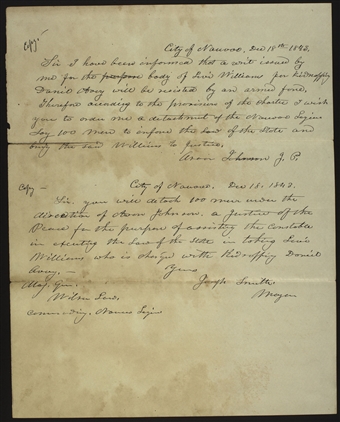 Copy.
City of Nauvoo, Dec 18th 1843.
Sir I have been informed that a writ issued by
me for the purpose body of Levi Williams for kidnapping
Daniel Avery will be resisted by an armed force,
Therefore according to the provisions of the charter I wish
you to order me a detachment of the Nauvoo Legion
Say 100 Men to enforce the law of the State and
bring the said Williams to Justice.
Aaron Johnson J. P.
Copy —
City of Nauvoo. Dec 18. 1843.
Sir. you will detach 100 men under the
direction of Aaron Johnson, a Justice of the
Peace for the purpose of assisting the Constable
in executing the law of the State in taking Levi
Williams who is charged with Kidnapping Daniel
Avery. —
Yours
Joseph Smith
Mayor
Maj. Gen.
Wilson Law.
Commanding. Nauvoo Legion